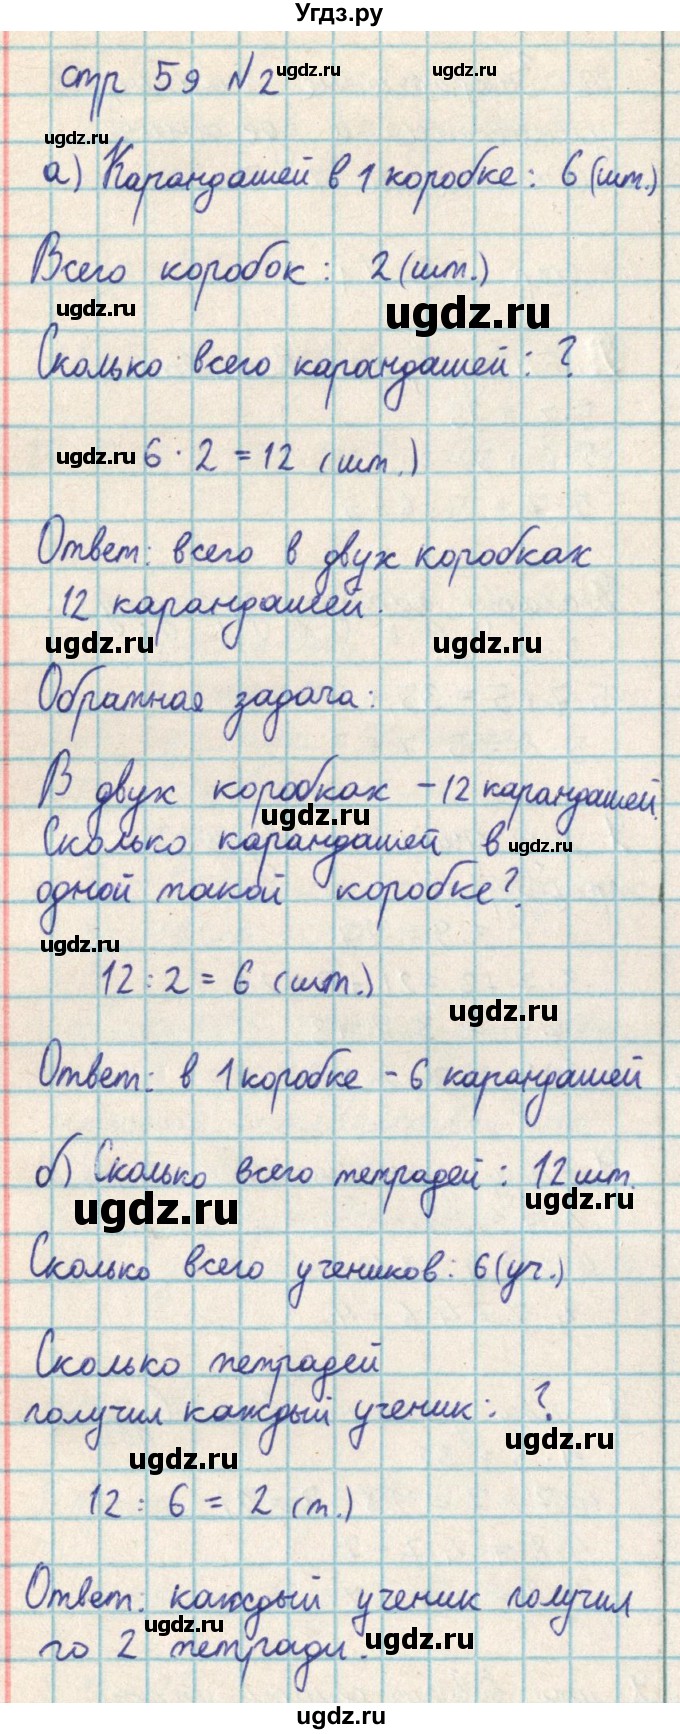 Угдз.ру
стр 59 №2
ugdz.ru ugdz.ru
ugdz.ru
а) Карандашей в 1 коробке: 6 (шт.)
Всего коробок: 2 (шт.)
ugdz.ru ugdz.ru
Сколько всего карандашей: ?
ugdz.ru 6 · 2 = 12 (шт.)
Ответ: всего в двух коробках
12 карандашей.
ugdz.ru ugdz.ru
Обратная задача:
В двух коробках - 12 карандашей.
ugdz.ru
Сколько карандашей в
ugdz.ru
одной такой коробке?
ugdz.ru
12 : 2 = 6 (шт.)
ugdz.ru
Ответ: в 1 коробке - 6 карандашей
б) Сколько всего тетрадей: 12 шт.
ugdz.ru ugdz.ru
Сколько всего учеников: 6 (уч.)
Сколько тетрадей
получил каждый ученик: ?
ugdz.ru ugdz.ru
12 : 6 = 2 (т.)
Ответ: каждый ученик получил
ugdz.ru ugdz.ru
по 2 тетради.
ugdz.ru